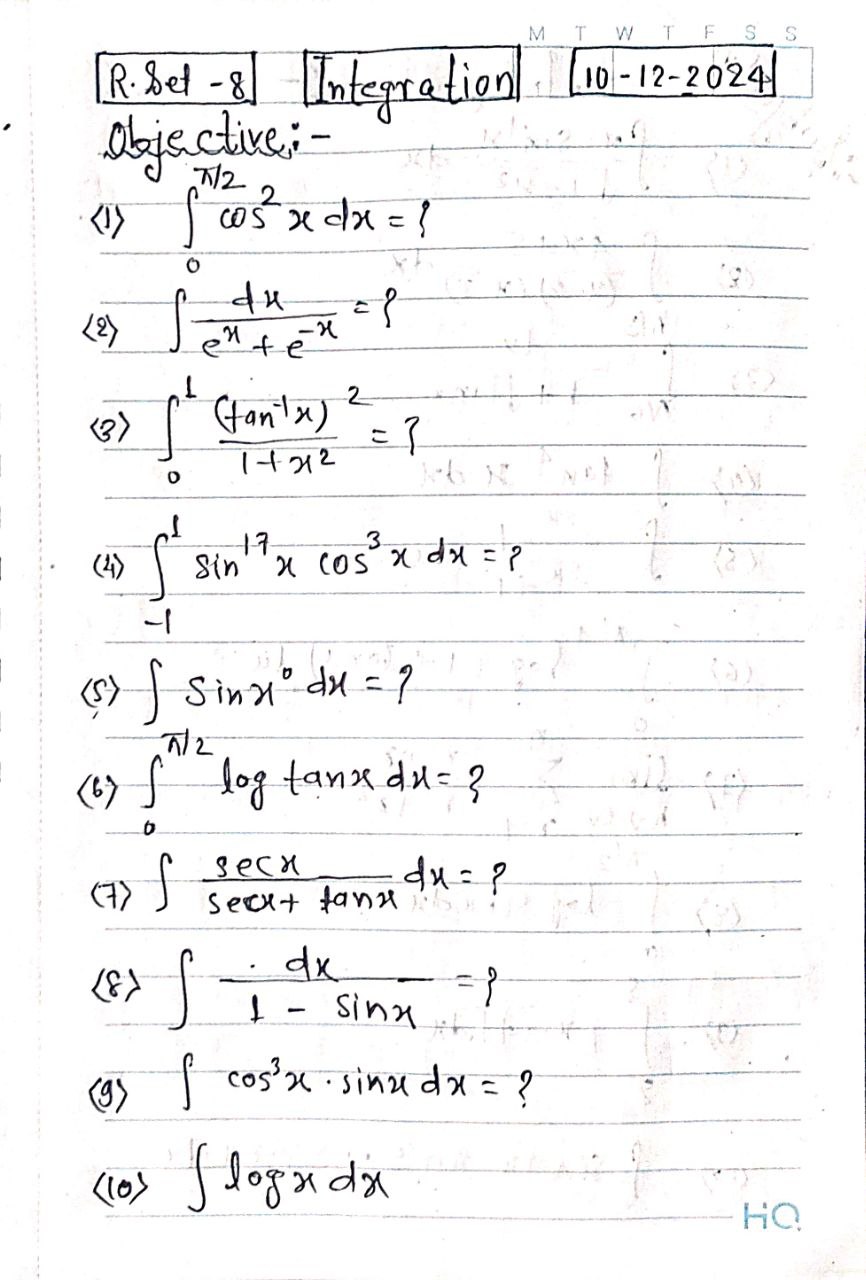 M T W T F S S
R. Set - 8 Integration 10-12-2024
Objective:-
<1> ∫₀^(π/2) cos² x dx = ?
<2> ∫ dx / (e^x + e^-x) = ?
<3> ∫₀^1 (tan⁻¹x)² / (1+x²) = ?
<4> ∫₋₁^1 sin¹⁷x cos³x dx = ?
<5> ∫ Sin x° dx = ?
<6> ∫₀^(π/2) log tanx dx = ?
<7> ∫ secx / (secx + tanx) dx = ?
<8> ∫ dx / (1 - sinx) = ?
<9> ∫ cos³x . sinx dx = ?
<10> ∫ logx dx
HQ